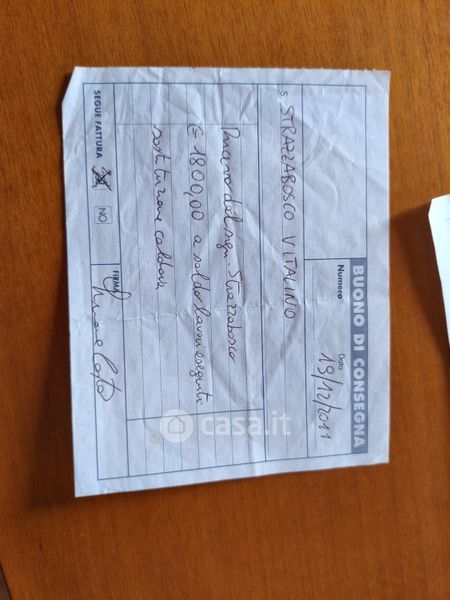 BUONO DI CONSEGNA
Numero
Data
19/12/2011
S. STRAZZABOSCO VITALINO
Ricevo dal sig. Strazzabosco
€ 1800,00 a saldo lavori eseguiti
sostituzione caldaia
casa.it
SEGUE FATTURA SI NO
FIRMA